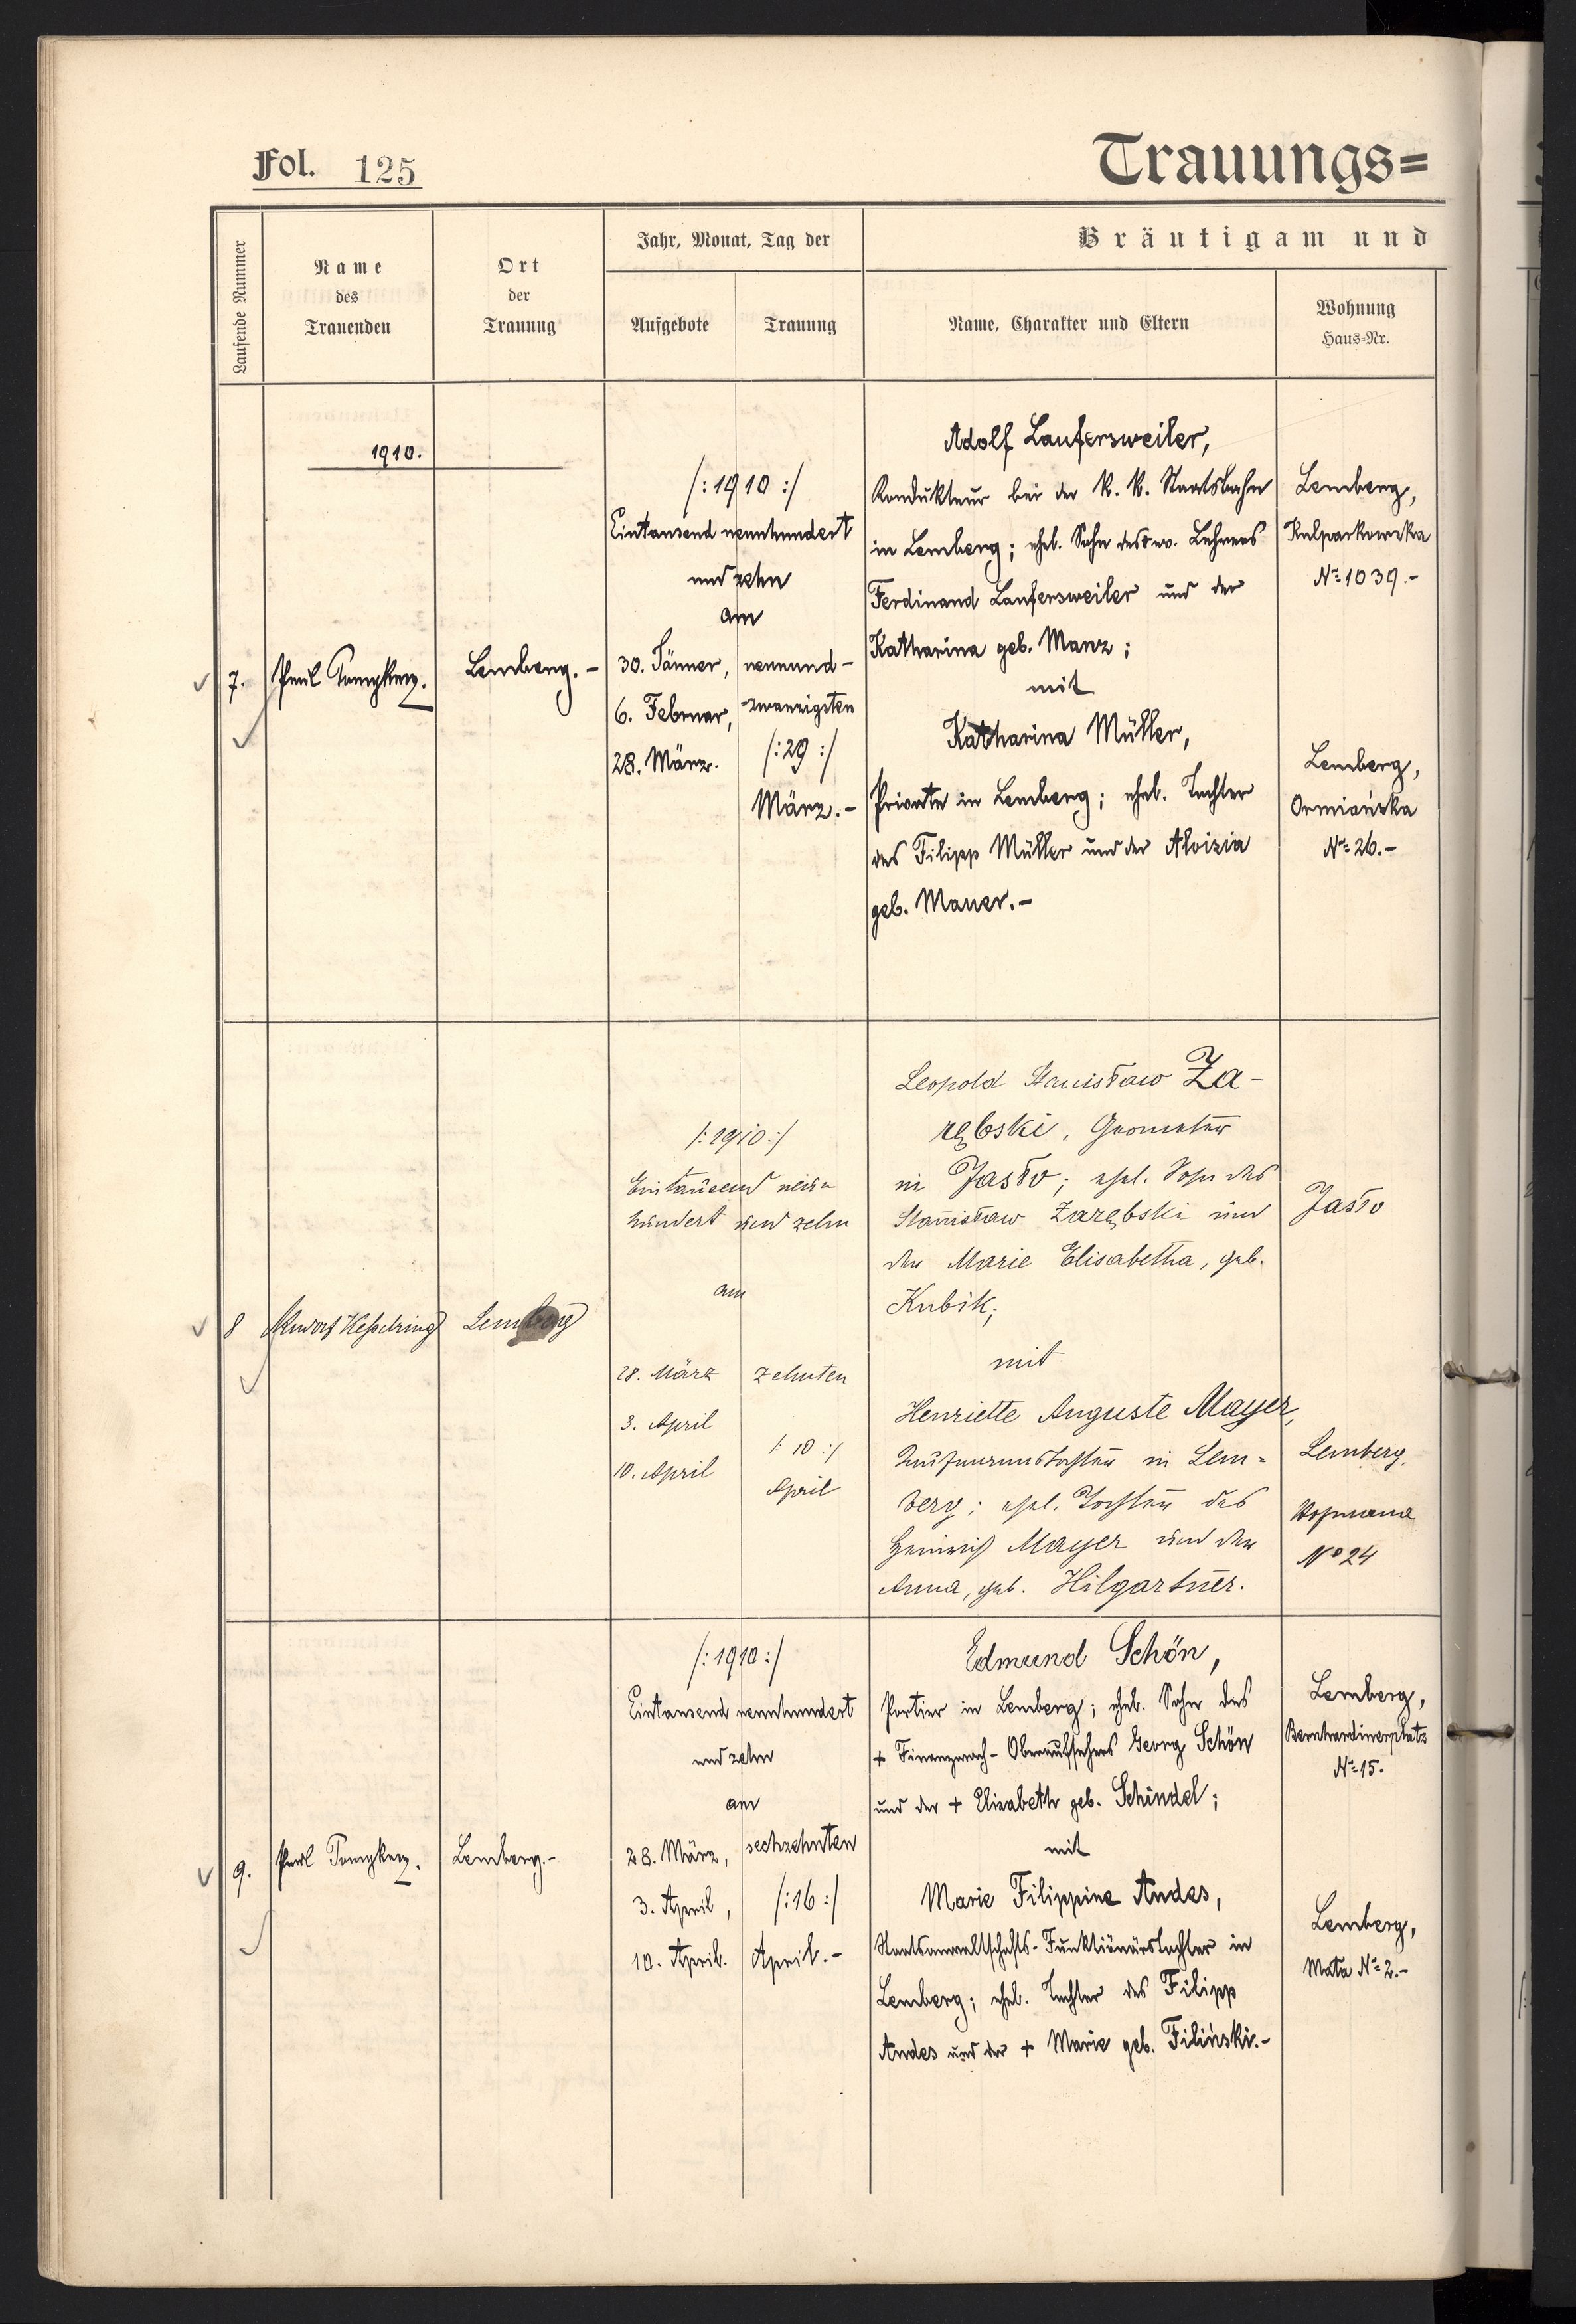 Fol. 125
Trauungs=
Laufende Nummer
Name
des
Trauenden
Ort
der
Trauung
Jahr, Monat, Tag der
Aufgebote
Trauung
Bräutigam und
Name, Charakter und Eltern
Wohnung
Haus=Nr.
1910.
7.
Lemberg.-
/:1910:/
Eintausend neunhundert
und zehn
am
30. Jänner,
6. Februar,
28. März.
neunund-
-zwanzigsten
/:29:/
März.-
Adolf Laufersweiler,
Kondukteur bei der k. k. Staatsbahn
in Lemberg; ehel. Sohn des ev. Lehrers
Ferdinand Laufersweiler und der
Katharina geb. Manz;
mit
Katharina Müller,
Private in Lemberg; ehel. Tochter
des Filipp Müller und der Aloizia
geb. Mauer.-
Lemberg,
Kulparkowska
No 1039.-
Lemberg,
Ormiańska
No 26.-
8
Rudolf Kesselring
Lemberg
/:1910:/
Eintausend neun
hundert und zehn
am
28. März
3. April
10. April
zehnten
/:10:/
April
Leopold Stanisław Za-
rębski, Geometer
in Jasło; ehel. Sohn des
Stanisław Zarębski und
der Marie Elisabetha, geb.
Kubik;
mit
Henriette Auguste Mayer,
in Lem=
berg; ehel. Tochter des
Heinrich Mayer und der
Anna, geb. Hilgartner.
Jasło
Lemberg,
No 24
9.
Lemberg.-
/:1910:/
Eintausend neunhundert
und zehn
am
28. März,
3. April,
10. April.
sechzehnten
/:16:/
April.-
Edmund Schön,
Portier in Lemberg; ehel. Sohn des
+ Finanzwach-Oberaufsehers Georg Schön
und der + Elisabeth geb. Schindel;
mit
Marie Filippine Andes,
Staatsanwaltschafts-Funktionärstochter in
Lemberg; ehel. Tochter des Filipp
Andes und der + Marie geb. Filiński.-
Lemberg,
Bernhardinerplatz
No 15.
Lemberg,
Mała No 2.-